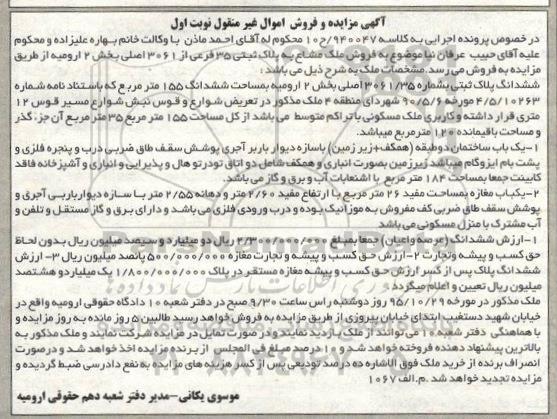 آگهی مزایده و فروش اموال غیر منقول نوبت اول
در خصوص پرونده اجرایی به کلاسه ۹۴۰۰۴۷/ج۱۰ محکوم له آقای احمد ماذن با وکالت خانم بهاره علیزاده و محکوم
علیه آقای حبیب عرفان نیا موضوع به فروش ملک مشاع به پلاک ثبتی ۳۵ فرعی از ۳۰۶۱ اصلی بخش ۲ ارومیه از طریق
مزایده به فروش می رسد. مشخصات ملک به شرح ذیل می باشد:
ششدانگ پلاک ثبتی بشماره ۳۰۶۱/۳۵ اصلی بخش ۲ ارومیه بمساحت ششدانگ ۱۵۵ متر مربع که باستناد نامه شماره
۴/۵/۱۰۲۶۳ مورخه ۹۰/۵/۶ شهرداری منطقه ۴ ملک مذکور در تعریض شوارع و قوس نبش شوارع مسیر قوس ۱۲
متری قرار داشته و کاربری ملک مسکونی با تراکم متوسط می باشد از کل مساحت ۱۵۵ متر مربع ۳۵ متر مربع آن جزء گذر
و مساحت باقیمانده ۱۲۰ متر مربع میباشد.
۱-یک باب ساختمان دو طبقه (همکف+زیر زمین) با سازه دیوار باربر آجری پوشش سقف طاق ضربی درب و پنجره فلزی و
پشت بام ایزوگام میباشد زیرزمین بصورت انباری و همکف شامل دو اتاق تو در تو هال و پذیرایی و انباری و آشپزخانه فاقد
کابینت جمعا بمساحت ۱۸۴ متر مربع با اشنعابات آب و برق و گاز می باشد.
۲-یکباب مغازه بمساحت مفید ۲۶ متر مربع با ارتفاع مفید ۲/۶۰ متر و دهانه ۲/۵۵ متر با سازه دیوار باربی آجری و
پوشش سقف طاق ضربی کف مفروش به موزائیک بوده و درب ورودی فلزی می باشد و دارای برق و گاز مستقل و تلفن و
آب مشترک با منزل مسکونی می باشد
۱-ارزش ششدانگ (عرصه و اعیان) جمعا بمبلغ ۲/۳۰۰/۰۰۰/۰۰۰ ریال دو میلیارد و سیصد میلیون ریال بدون لحاظ
حق کسب و پیشه و تجارت ۲-ارزش حق کسب و پیشه و تجارت مغازه ۵۰۰/۰۰۰/۰۰۰ پانصد میلیون ریال ۳- ارزش
ششدانگ پلاک پس از کسر ارزش حق کسب و پیشه مغازه مستقر در پلاک ۱/۸۰۰/۰۰۰/۰۰۰ یک میلیارد و هشتصد
میلیون ریال تعیین و اعلام میگردد
ملک مذکور در مورخه ۹۵/۱۰/۲۹ روز دوشنبه راس ساعت ۹/۳۰ صبح در دفتر شعبه ۱۰ دادگاه حقوقی ارومیه واقع در
خیابان شهید دستغیب ابتدای خیابان پیروزی از طریق مزایده به فروش خواهد رسید طالبین ۵ روز مانده به روز مزایده و
با هماهنگی دفتر شعبه ۱۰ می توانند از ملک بازدید نمایند و در صورت تمایل در مزایده شرکت نمایند و ملک مذکور به
بالاترین پیشنهاد دهنده فروخته خواهد شد و ۱۰ درصد مبلغ فی المجلس از برنده مزایده اخذ خواهد شد و در صورت
انصراف برنده از خرید ملک فوق الاشاره ده درصد تودیعی پس از کسر هزینه های مزایده به نفع دادرسی ضبط گردیده و
مزایده تجدید خواهد شد .م.الف ۱۰۶۷
موسوی یکانی-مدیر دفتر شعبه دهم حقوقی ارومیه